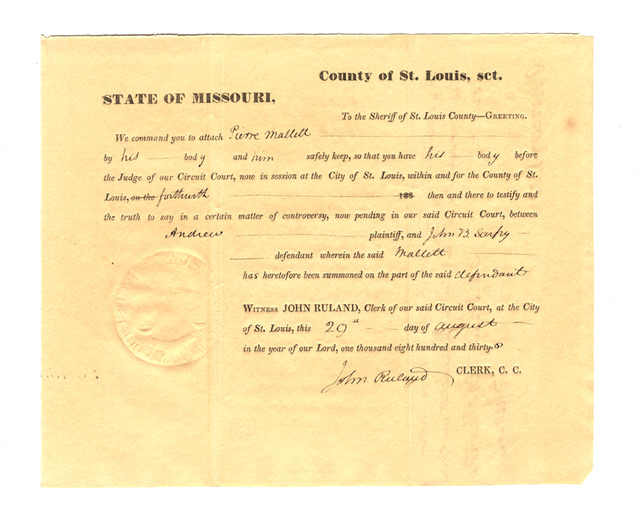 County of St. Louis, sct.
STATE OF MISSOURI,
To the Sheriff of St. Louis County—GREETING.
We commond you to attach Pierre Mallett
by his body and him safely keep, so that you have his body before
the Judge of our Circuit Court, now in session at the City of St. Louis, within and for the County of St.
Louis, on the forthwith 183 then and there to testify and
the truth to say in a certain matter of controversy, now pending in our said Circuit Court, between
Andrew plaintiff, and John B. Sarpy
defendant wherein the said Mallett
has heretofore been summoned on the part of the said defendant
WITNESS JOHN RULAND, Clerk of our said Circuit Court, at the City
of St. Louis, this 29th day of August
in the year of our Lord, one thousand eight hundred and thirty-8
John Ruland CLERK, C. C.